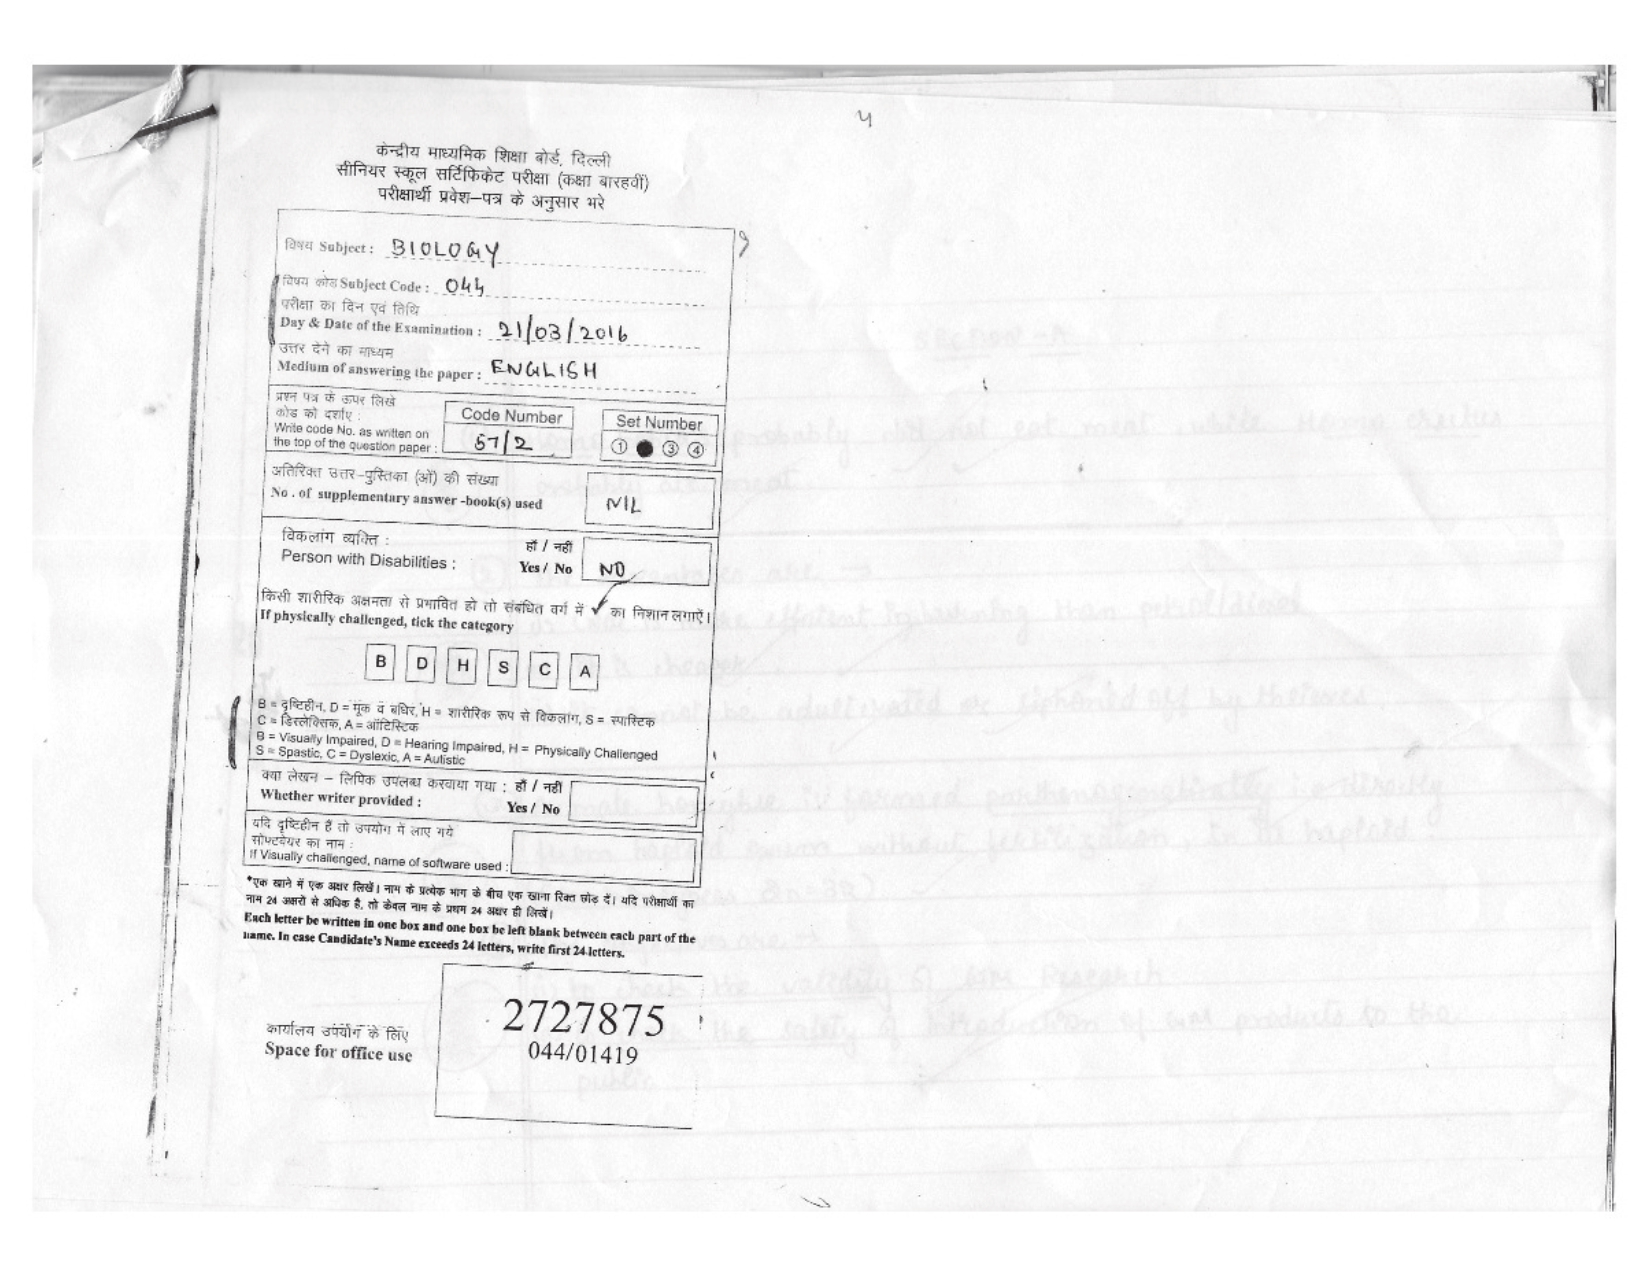 केन्द्रीय माध्यमिक शिक्षा बोर्ड, दिल्ली
सीनियर स्कूल सर्टिफिकेट परीक्षा (कक्षा बारहवीं)
परीक्षार्थी प्रवेश–पत्र के अनुसार भरे
विषय Subject : BIOLOGY
विषय कोड Subject Code : 044
परीक्षा का दिन एवं तिथि
Day & Date of the Examination : 21/03/2016
उत्तर देने का माध्यम
Medium of answering the paper : ENGLISH
प्रश्न पत्र के ऊपर लिखे
कोड को दर्शाए :
Write code No. as written on
the top of the question paper :
Code Number
57/2
Set Number
① ③ ④
अतिरिक्त उत्तर–पुस्तिका (ओं) की संख्या
No . of supplementary answer -book(s) used
NIL
विकलांग व्यक्ति : हाँ / नहीं
Person with Disabilities : Yes / No NO
किसी शारीरिक अक्षमता से प्रभावित हो तो संबंधित वर्ग में ✓ का निशान लगाऐं।
If physically challenged, tick the category
B D H S C A
B = दृष्टिहीन, D = मूक व बधिर, H = शारीरिक रूप से विकलांग, S = स्पास्टिक
C = डिस्लेक्सिक, A = ऑटिस्टिक
B = Visually Impaired, D = Hearing Impaired, H = Physically Challenged
S = Spastic, C = Dyslexic, A = Autistic
क्या लेखन – लिपिक उपलब्ध करवाया गया : हाँ / नहीं
Whether writer provided : Yes / No
यदि दृष्टिहीन हैं तो उपयोग में लाए गये
सोफ्टवेयर का नाम :
If Visually challenged, name of software used :
*एक खाने में एक अक्षर लिखें। नाम के प्रत्येक भाग के बीच एक खाना रिक्त छोड़ दें। यदि परीक्षार्थी का
नाम 24 अक्षरों से अधिक है, तो केवल नाम के प्रथम 24 अक्षर ही लिखें।
Each letter be written in one box and one box be left blank between each part of the
name. In case Candidate's Name exceeds 24 letters, write first 24 letters.
कार्यालय उपयोग के लिए
Space for office use
2727875
044/01419